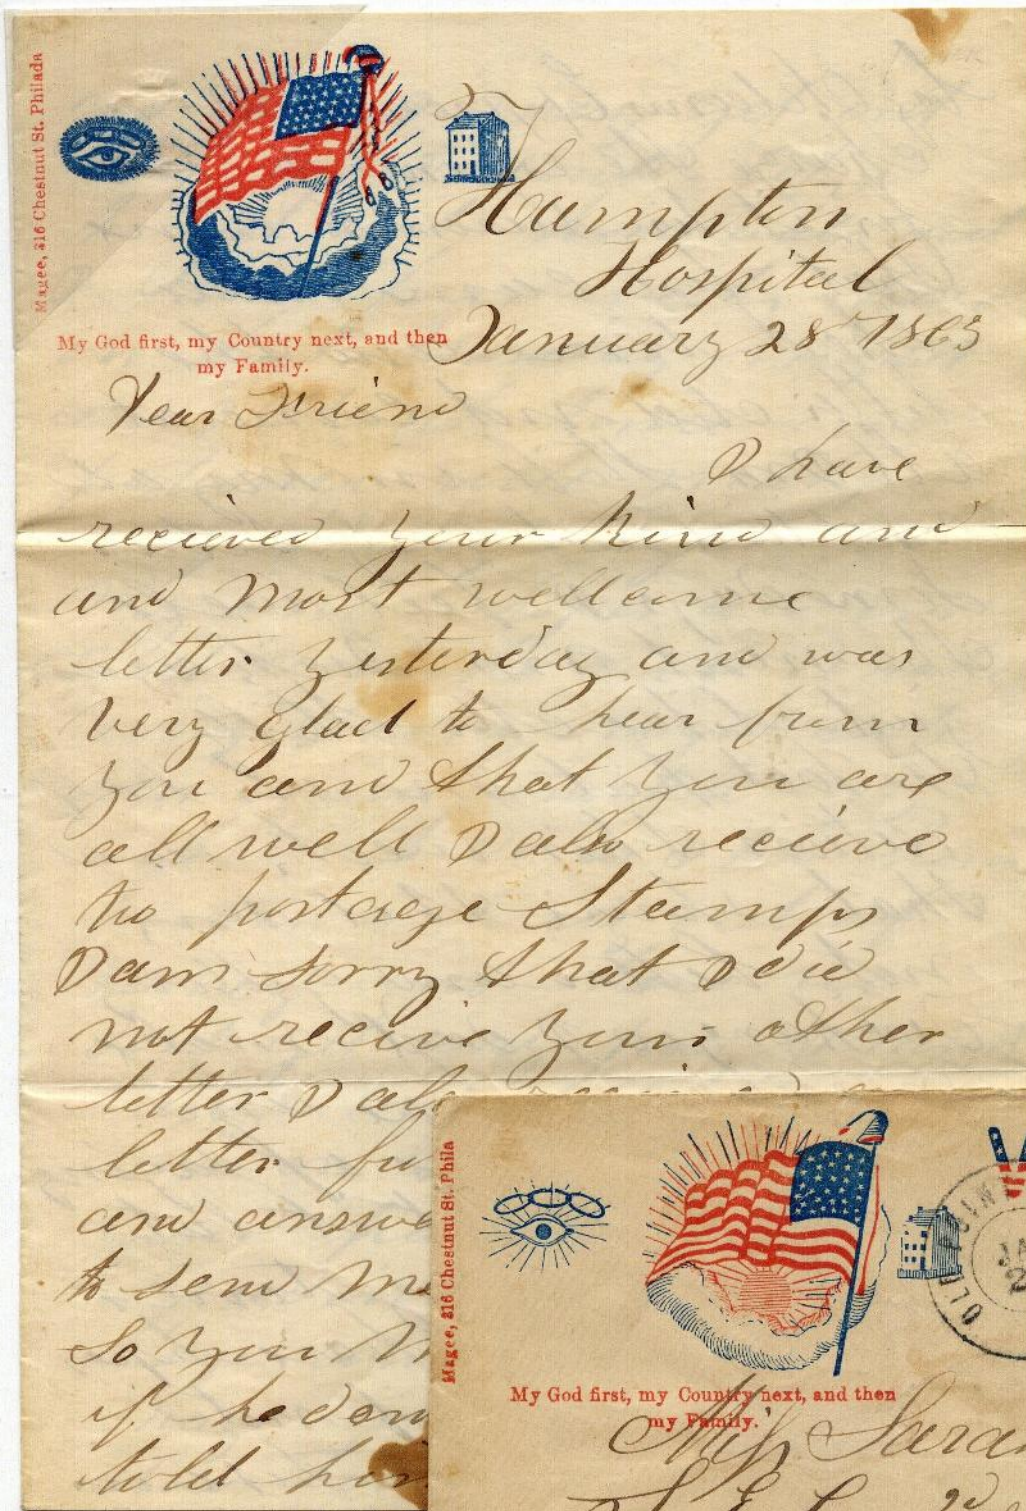 Magee, 316 Chestnut St. Philada
My God first, my Country next, and then
my Family.
Hampton
Hospital
January 28th 1863
Dear Friend
I have
recieved your kind and
and most wellcome
letter yesterday and was
very glad to hear from
you and that you are
all well I also recieve
two postage Stamps
I am sorry that I did
not receive your other
letter I
letter
and
to send me
So you
if he
told
Magee, 316 Chestnut St. Phila
My God first, my Country next, and then
my Family.
OLD
JA
2
Miss Sarah
S. E.